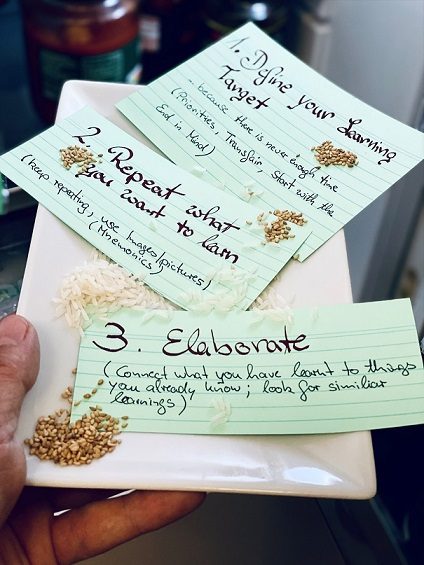 1. Define your Learning
Target
- because there is never enough time
(Priorities, Transfair, Start with the
End in Mind)
2. Repeat what
you want to learn
(keep repeating, use Images/pictures
(Mnemonics)
3. Elaborate
(Connect what you have learnt to things
you already know; look for similiar
learnings)